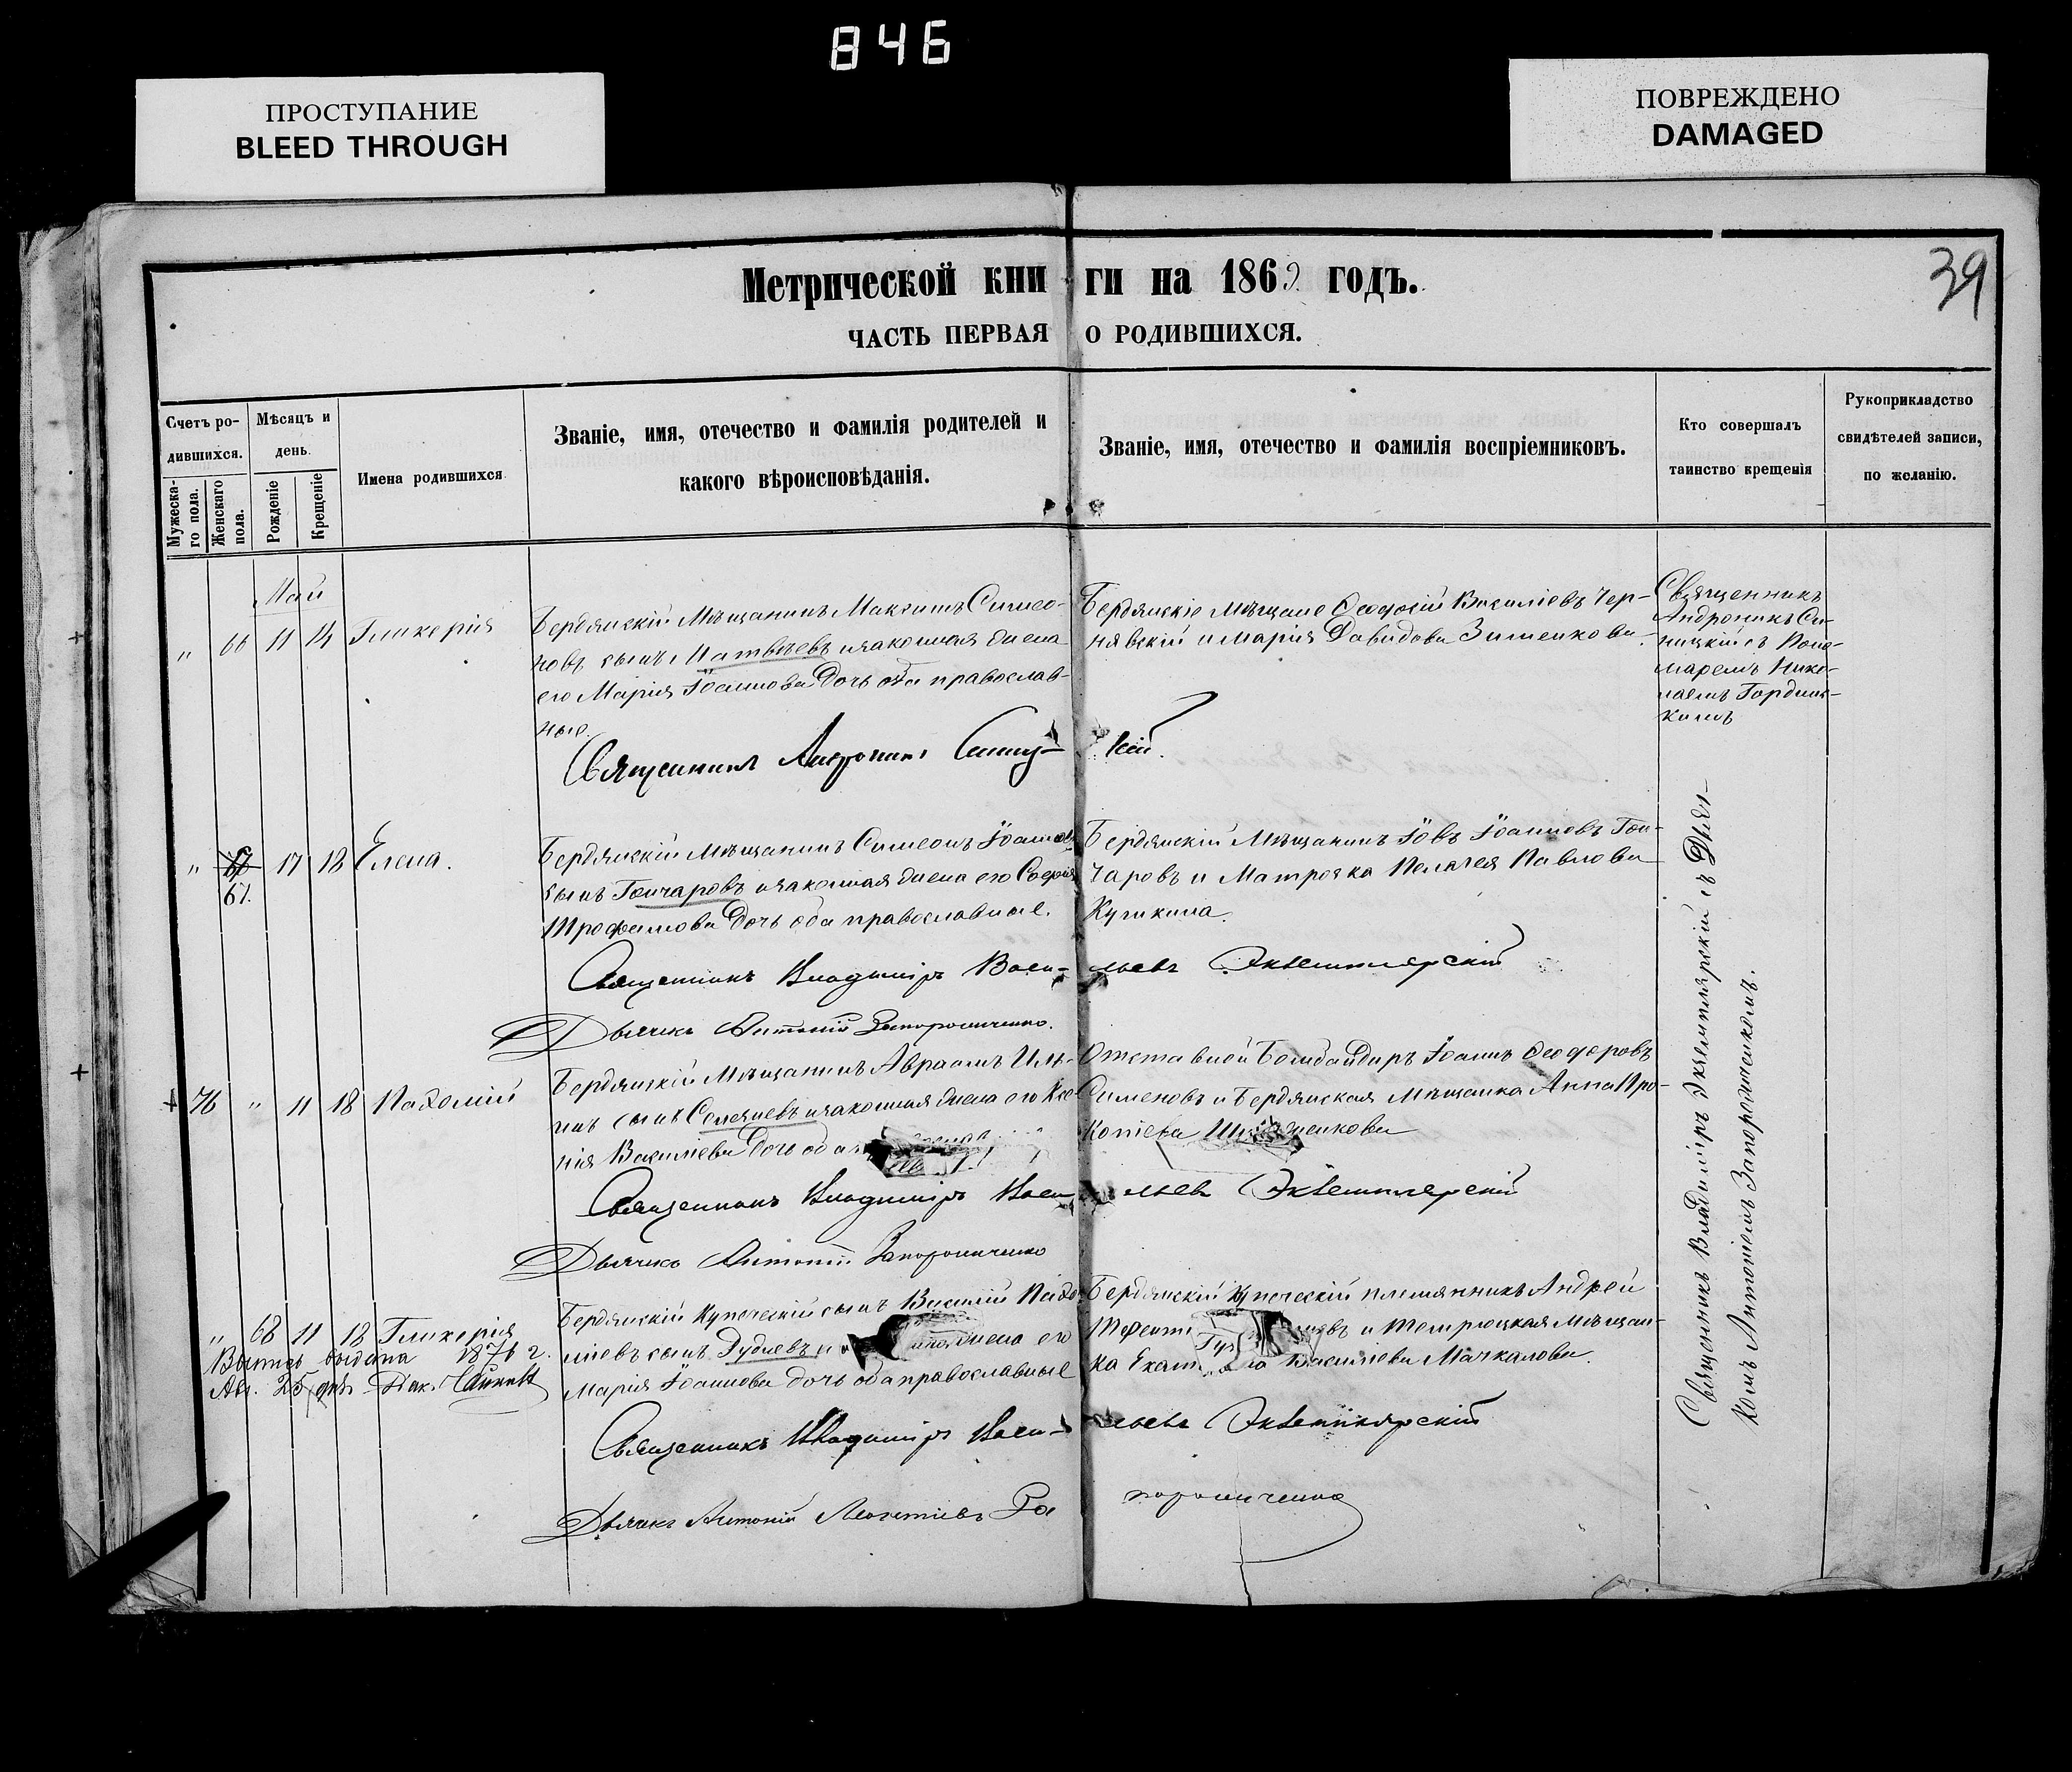 846
ПРОСТУПАНИЕ
BLEED THROUGH
ПОВРЕЖДЕНО
DAMAGED
39
Метрической книги на 1869 годъ.
ЧАСТЬ ПЕРВАЯ О РОДИВШИХСЯ.
Счетъ родившихся.
Мужескаго пола.
Женскаго пола.
Мѣсяцъ и день.
Рожденіе
Крещеніе
Имена родившихся
Званіе, имя, отечество и фамилія родителей и
какого вѣроисповѣданія.
Званіе, имя, отечество и фамилія воспріемниковъ.
Кто совершалъ
таинство крещенія
Рукоприкладство
свидѣтелей записи,
по желанію.
Май
" 66 11 14 Гликерія
Бердянскій Мѣщанинъ Максимъ Симео-
новъ сынъ Матвѣевъ и законная жена
его Марія Іоаннова дочь оба православ-
ные.
Бердянскіе Мѣщане Ѳеодосій Василіевъ Чер-
нявскій и Марія Давидова Зименкова.
Священникъ
Андроникъ Си-
ницкій съ Поно-
маремъ Нико-
лаемъ Гордин-
Священникъ Андроникъ Синицкій.
" 67 17 18 Елена.
67.
Бердянскій Мѣщанинъ Симеонъ Іоанновъ
сынъ Гончаровъ и законная жена его Софія
Трофимова дочь оба православные.
Бердянскій Мѣщанинъ Іовъ Іоанновъ Гон-
чаровъ и Матроска Пелагея Павлова
Священникъ Владиміръ Васильевъ Эквемплярскій
Дьячекъ Антоній Запорожченко.
+ 76 " 11 18 Пахомій
Бердянскій Мѣщанинъ Авраамъ Иль-
инъ сынъ и законная жена его Ксе-
нія Василіева дочь оба
Отставной Бомбандиръ Іоаннъ Ѳеодоровъ
Сименовъ и Бердянская Мѣщанка Анна Про-
копіева
Священникъ Владиміръ Васильевъ Эквемплярскій
Дьячекъ Антоній Запорожченко
" 68 11 18 Гликерія
Выпись выдана 1876 г.
Авг. 25 дня
Бердянскій Купеческій сынъ Василій Пахо-
міевъ сынъ Дудиевъ и жена его
Марія Іоаннова дочь оба православные
Бердянскій Купеческій племянникъ Андрей
и Темрюцкая Мѣщан-
ка Василіева Мачкалова.
Священникъ Владиміръ Васильевъ Эквемплярскій
Дьячекъ Антоній Леонтіевъ Запорожченко
Священникъ Владиміръ Эквемплярскій съ Дьяч-
комъ Антоніемъ Запорожченкомъ.